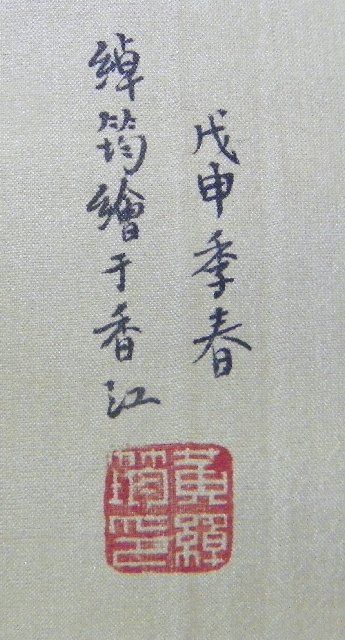 戊申季春
綽筠繪于香江
黃綽筠印